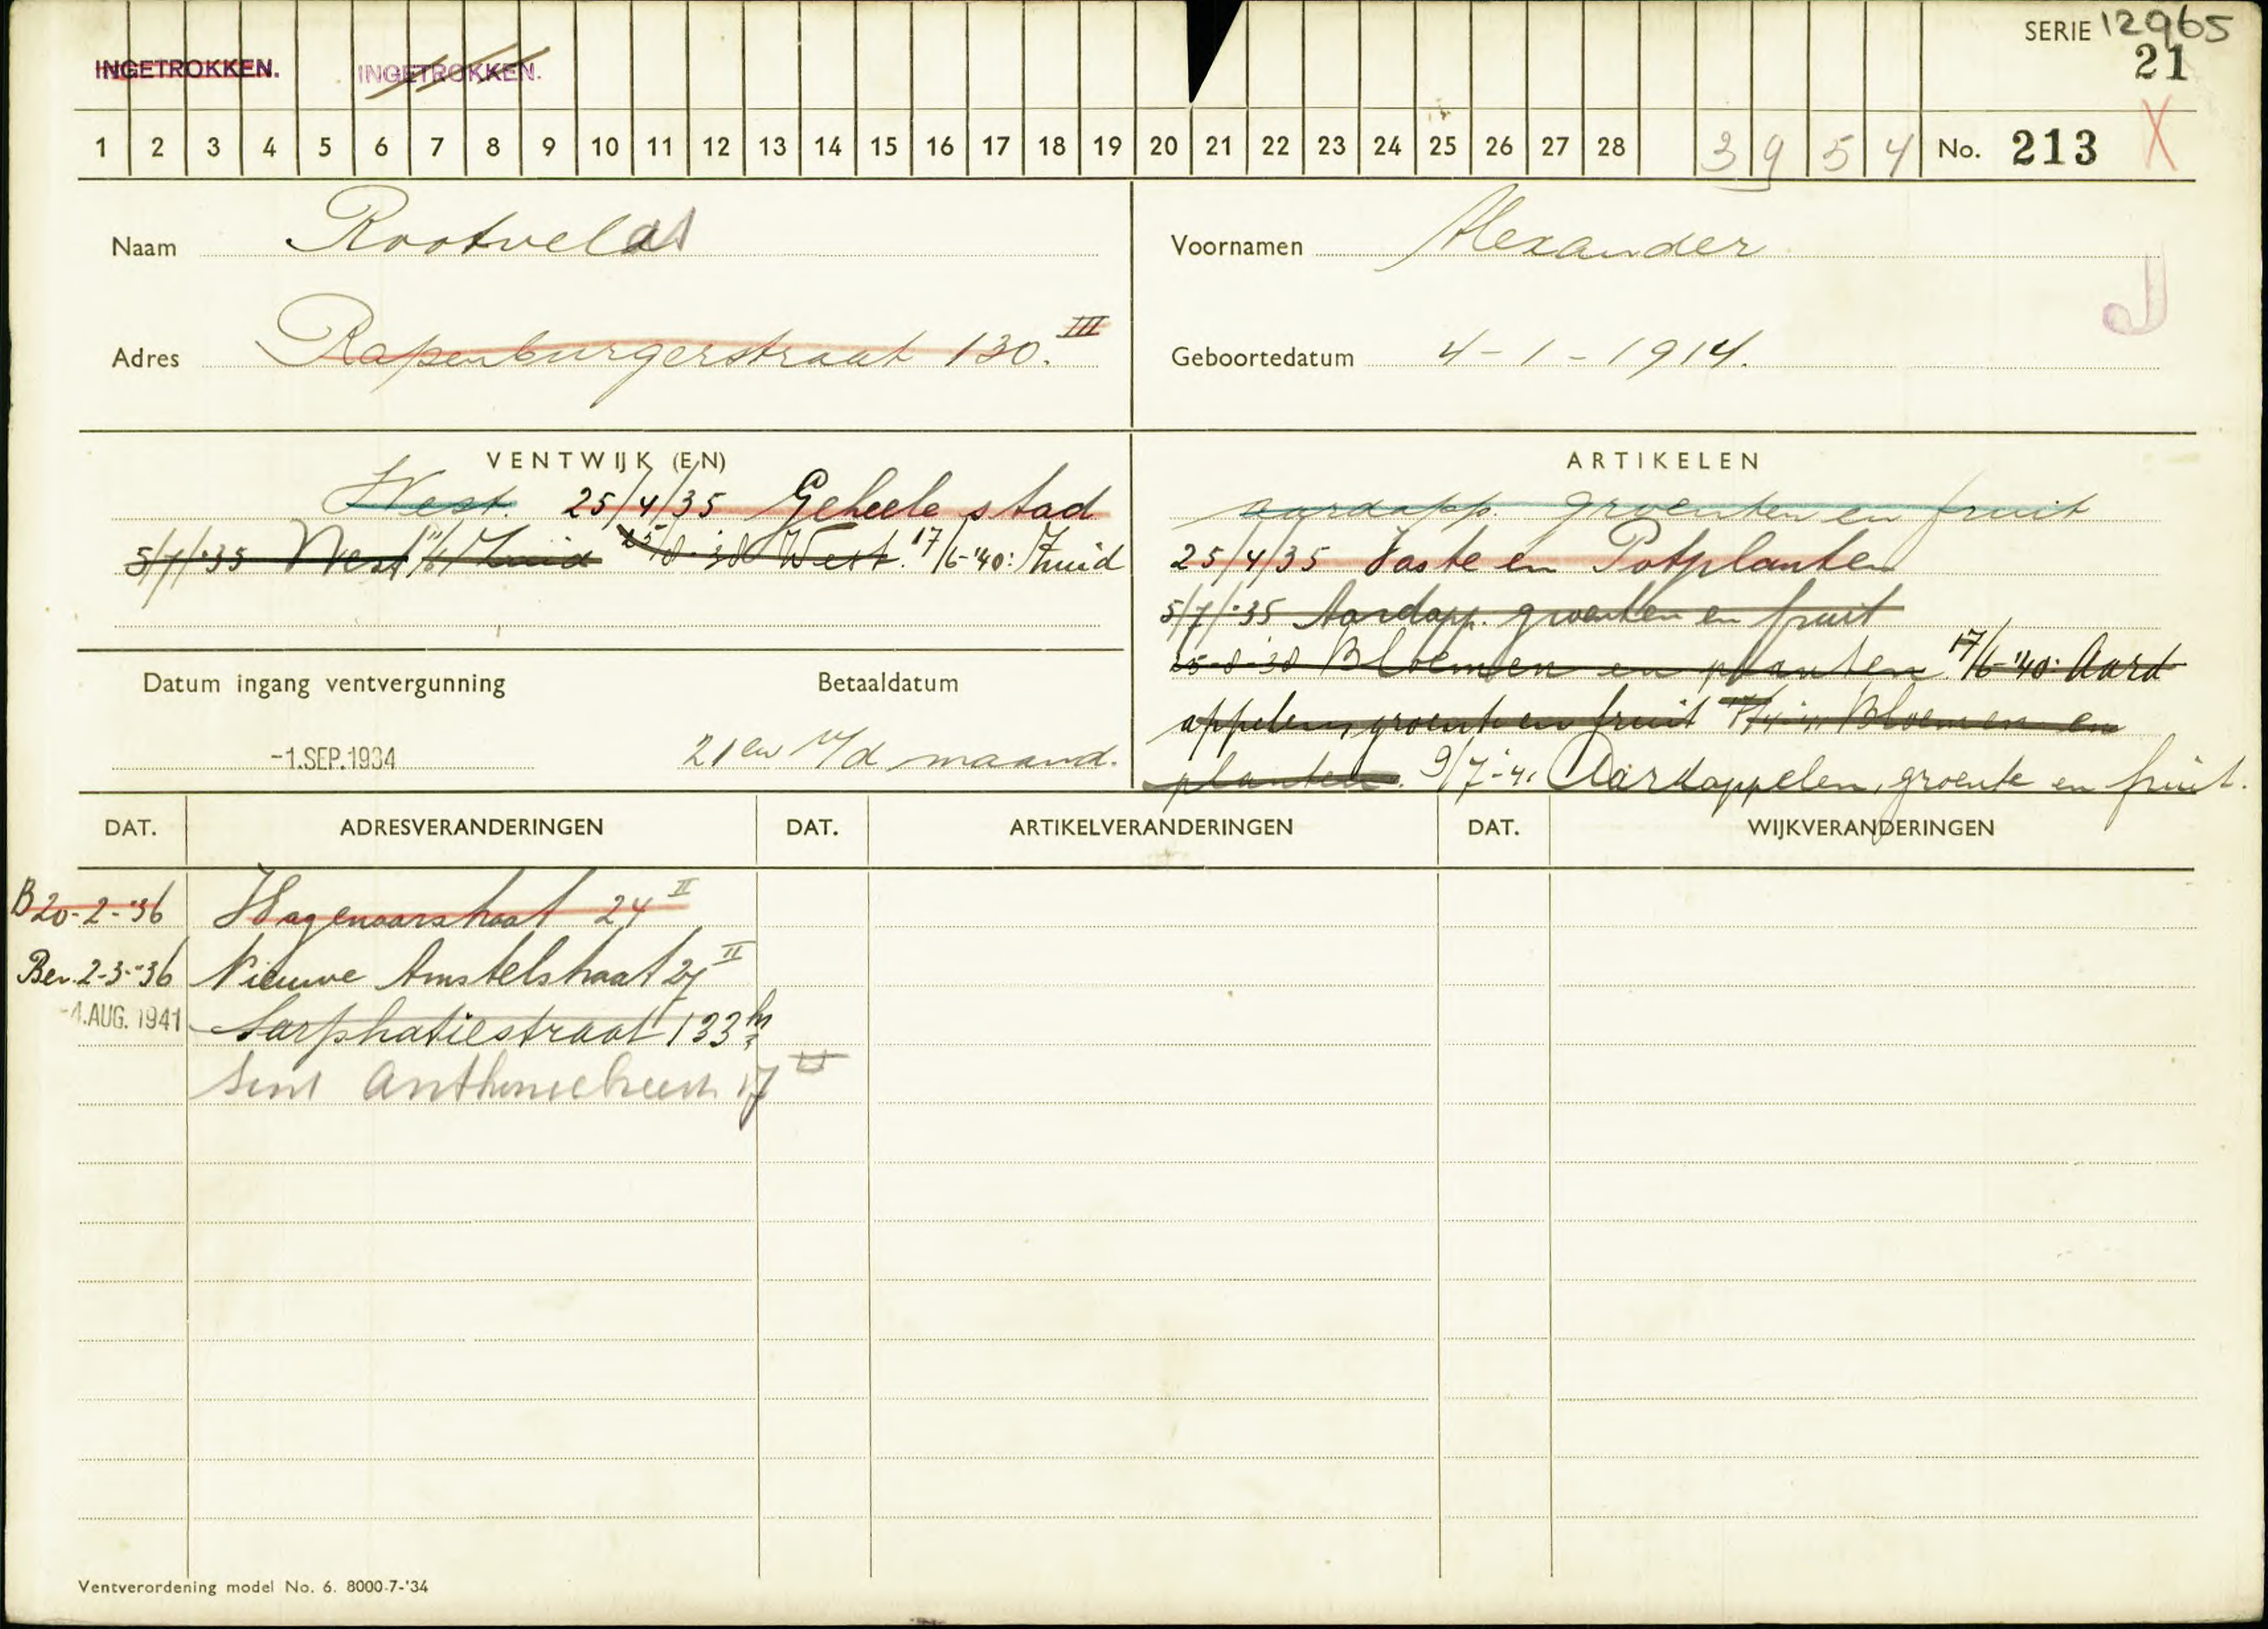 SERIE 12965
INGETROKKEN. INGETROKKEN. 21
1 2 3 4 5 6 7 8 9 10 11 12 13 14 15 16 17 18 19 20 21 22 23 24 25 26 27 28 3 9 5 4 No. 213 X
Naam Rootveld
Voornamen Alexander
J
Adres Rapenburgerstraat 130. III
Geboortedatum 4-1-1914.
VENTWIJK (EN)
West. 25/4/35 Geheele stad
5/7/'35 West Zuid 25/8-38 West. 17/6-'40: Zuid
ARTIKELEN
aardapp. groenten en fruit
25/4/35 Vaste en Potplanten
5/7/'35 Aardapp. groenten en fruit
25-8-38 Bloemen en planten. 17/6-'40: Aard
appelen, groente en fruit Bloemen en
planten. 9/7-41 Aardappelen, groente en fruit.
Datum ingang ventvergunning
-1.SEP.1934
Betaaldatum
21en v/d maand.
DAT. ADRESVERANDERINGEN DAT. ARTIKELVERANDERINGEN DAT. WIJKVERANDERINGEN
B 20-2-'36 Wagenaarstraat 24 II
Ber. 2-3-'36 Nieuwe Amstelstraat 27 II
-4.AUG.1941 Sarphatiestraat 133 hs
Sint Anthoniebreestr 17 II
Ventverordening model No. 6. 8000-7-'34